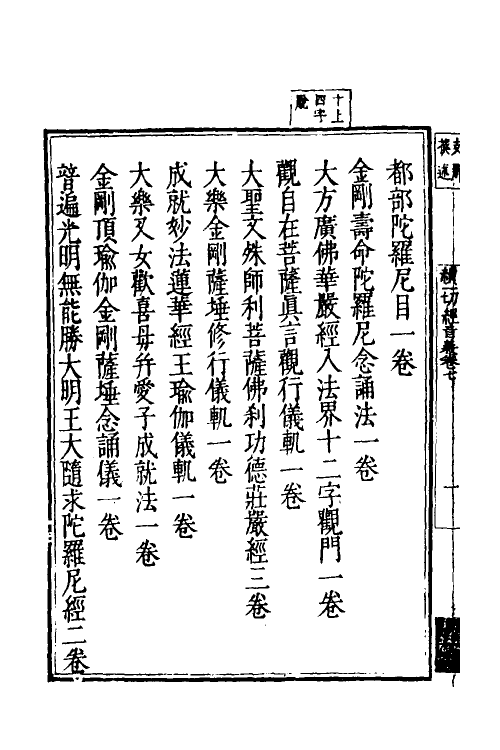 十上
四字
都部陀羅尼目一卷
金剛壽命陀羅尼念誦法一卷
大方廣佛華嚴經入法界十二字觀門一卷
觀自在菩薩眞言觀行儀軌一卷
大聖文殊師利菩薩佛利功德莊嚴經三卷
大樂金剛薩埵修行儀軌一卷
成就妙法蓮華經王瑜伽儀軌一卷
大藥叉女歡喜母幷愛子成就法一卷
金剛頂瑜伽金剛薩埵念誦儀一卷
普遍光明無能勝大明王大隨求陀羅尼經二卷
續一切經音義卷七